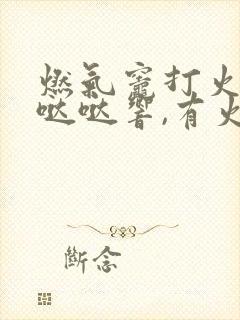 燃氣竈打火
哒哒響,有火
斷念